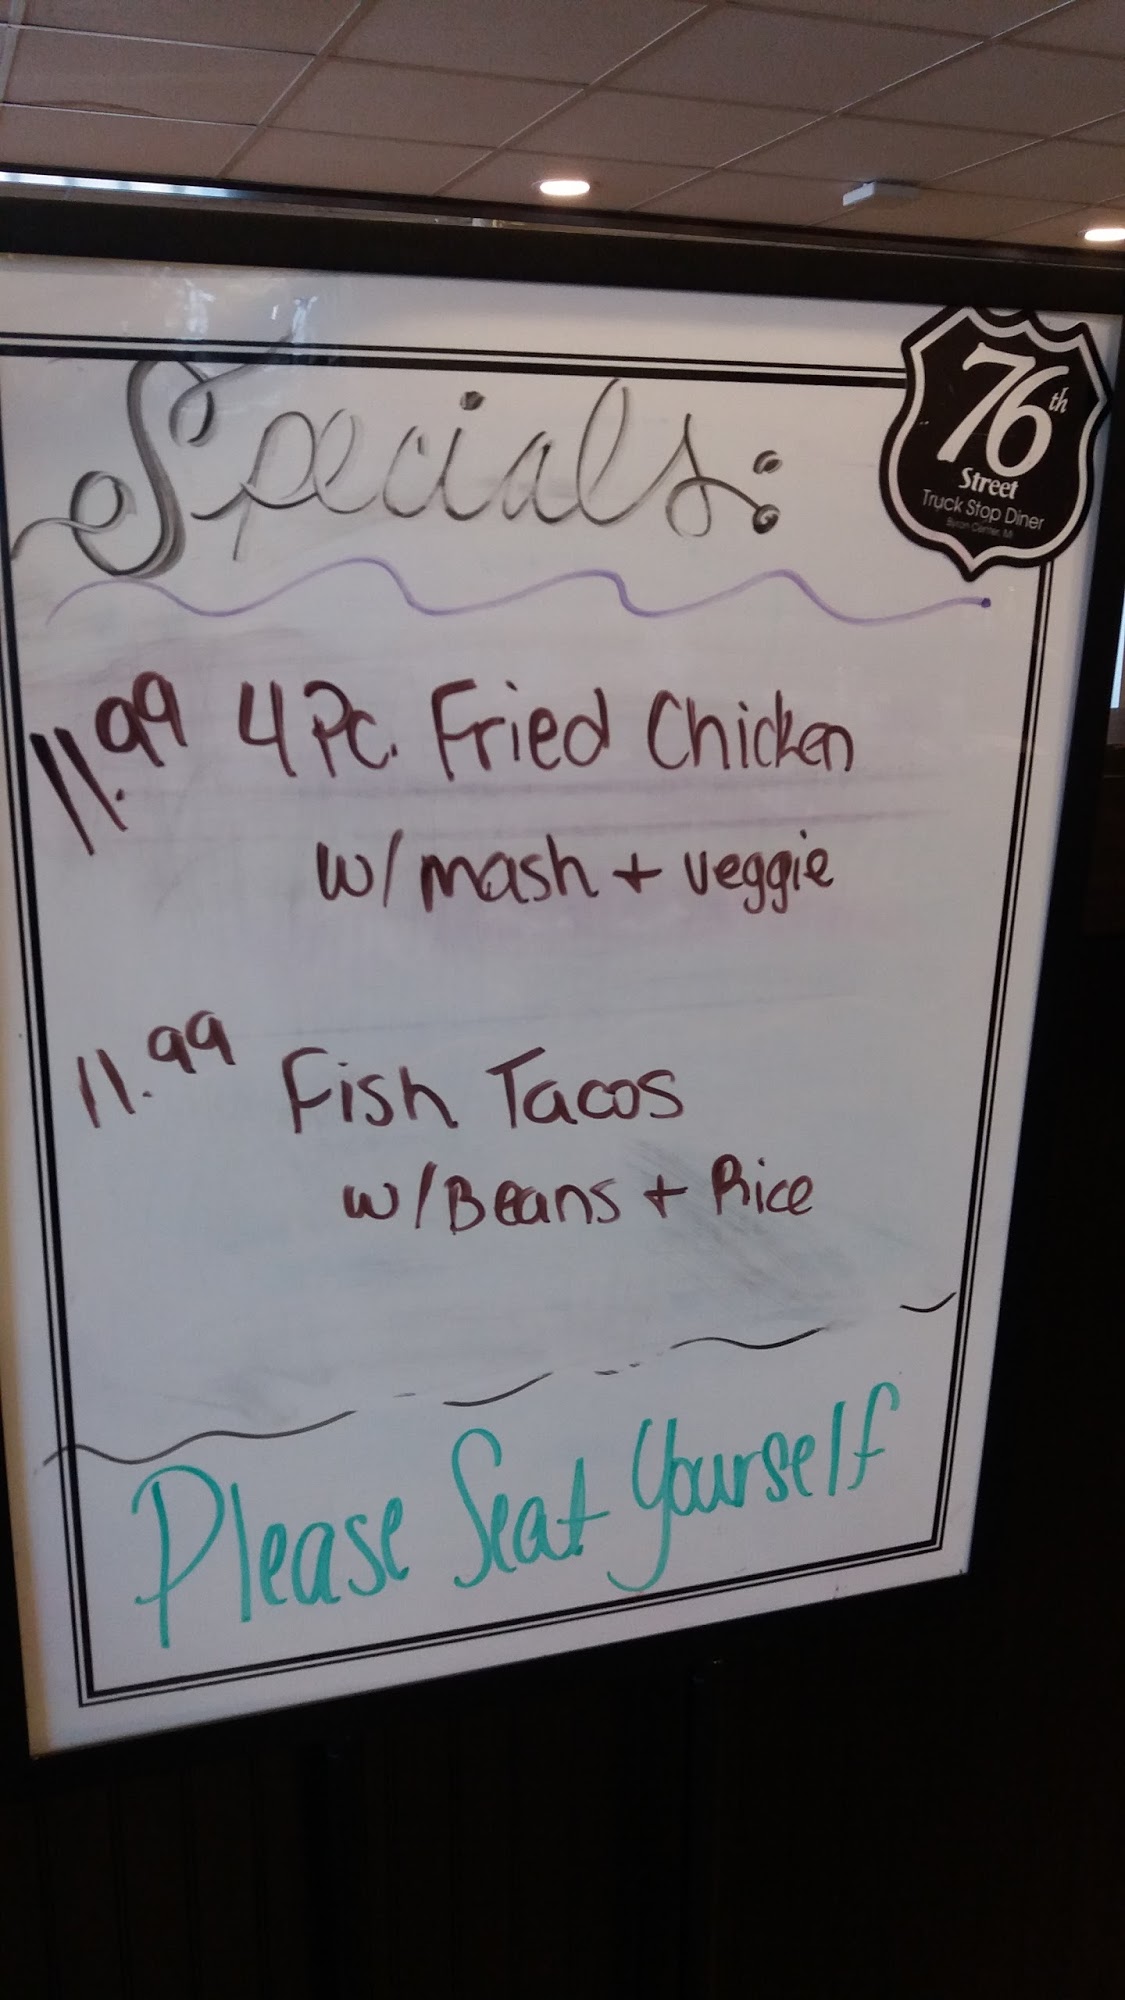 Specials:
76th
Street
Truck Stop Diner
Byron Center, MI
11.99 4 Pc. Fried Chicken
w/ mash + veggie
11.99 Fish Tacos
w/ Beans + Rice
Please Seat Yourself